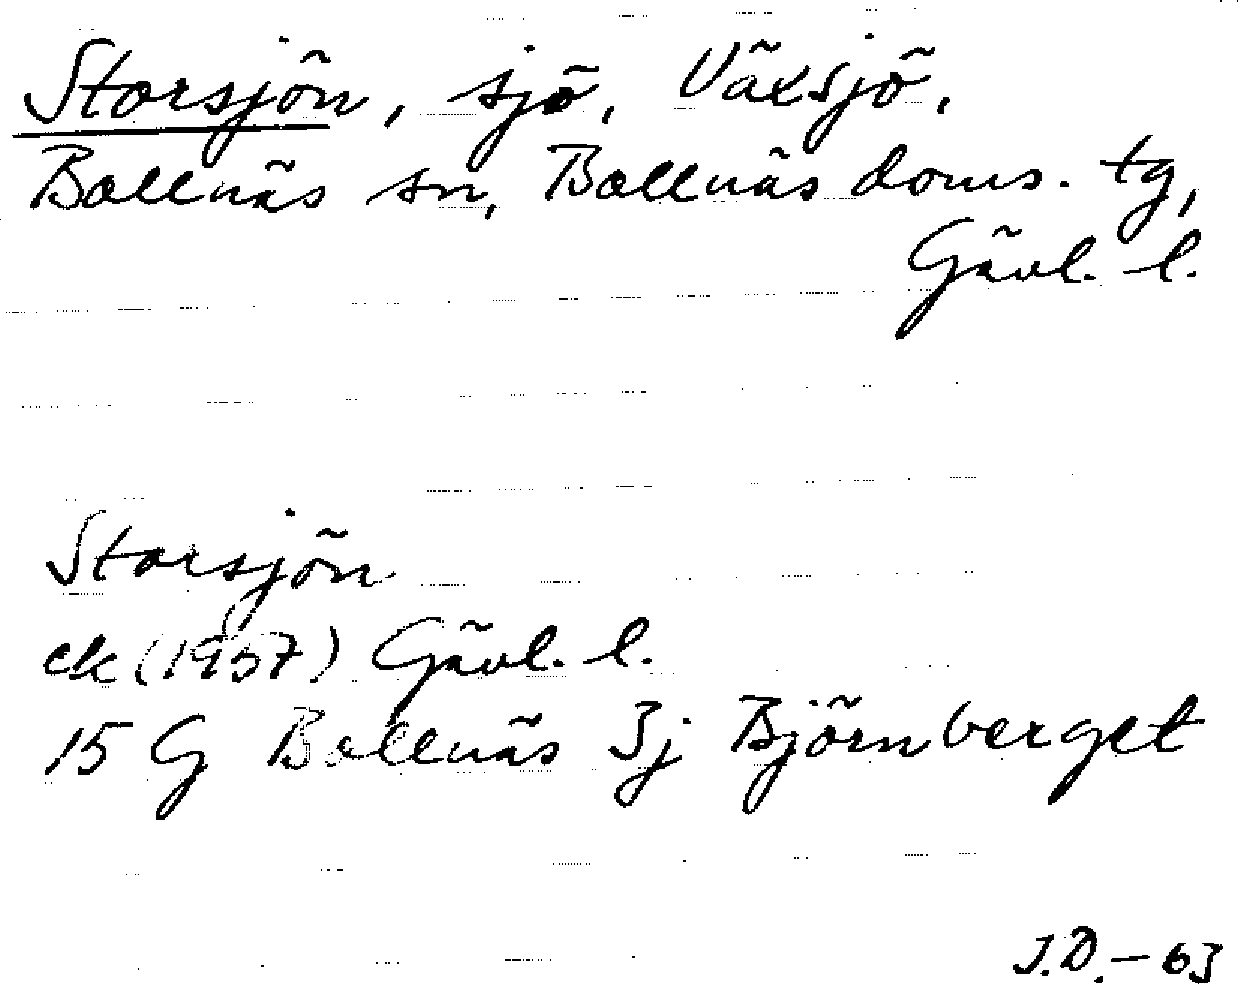 Storsjön, sjö, Växsjö,
Bollnäs sn, Bollnäs doms. tg,
Gävl. l.
Storsjön
ek (1957) Gävl. l.
15 G Bollnäs 3j Björnberget
J.D. – 63